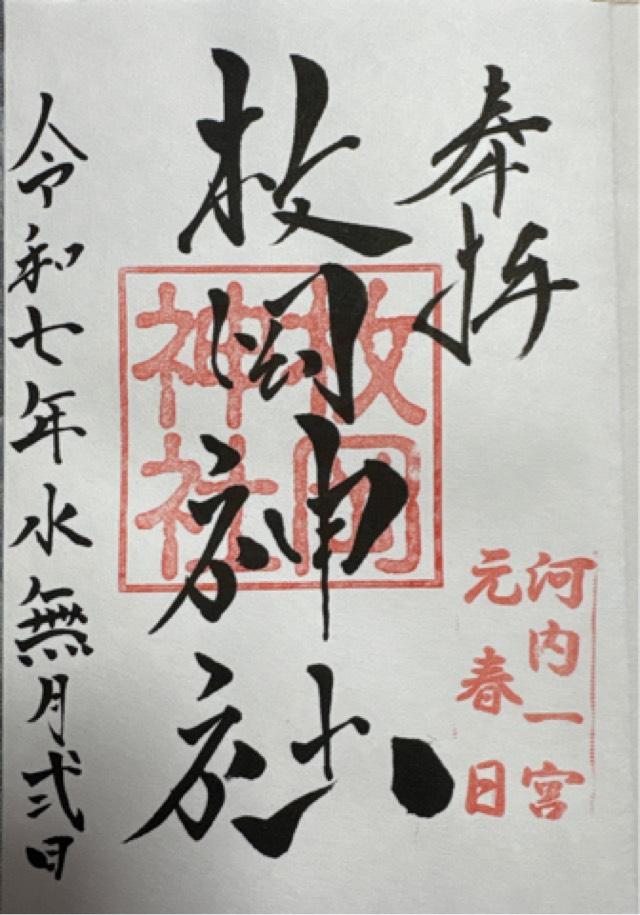 奉拝
河内一宮
元春日
枚岡神社
枚岡
神社
令和七年水無月弐日